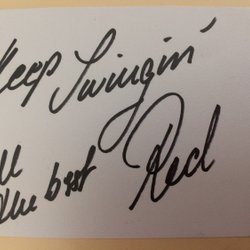 Keep Swingin'
All
the best Red